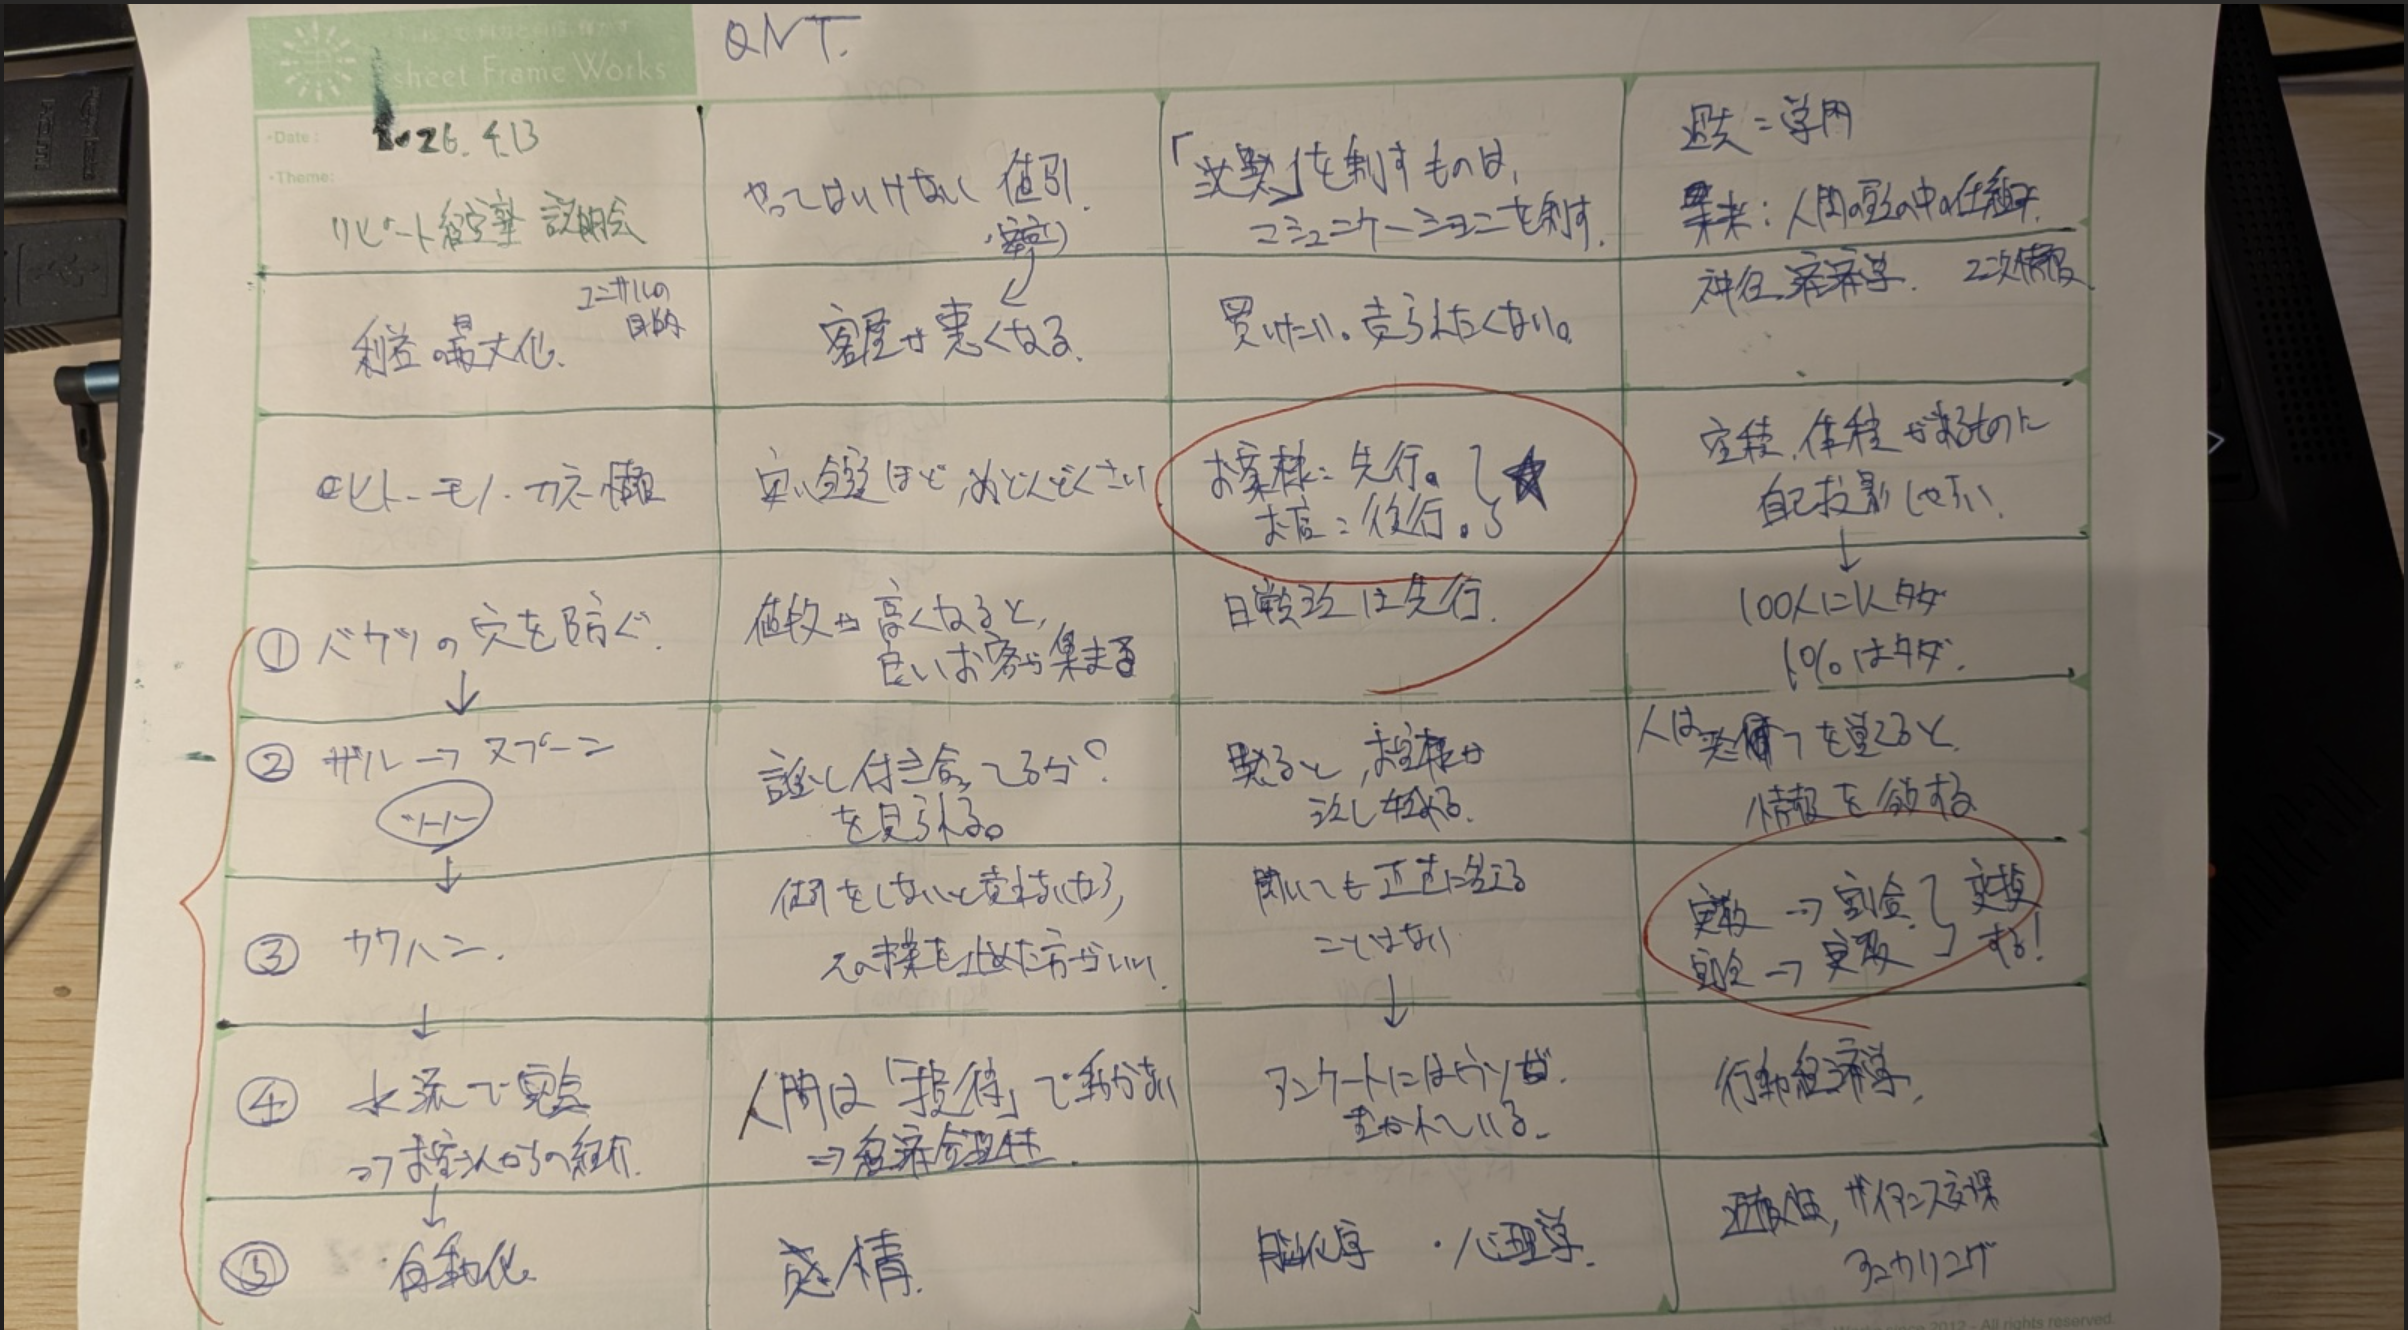 QNT.
sheet Frame Works
・Date:
2026.4.13
・Theme:
リピート経営塾 説明会
利益の最大化.
コンサルの
目的
ヒト・モノ・カネ・情報
① バケツの穴を防ぐ.
↓
② ザル→スプーン
↓
③
↓
④ 水流で
⇒お客さんからの紹介.
↓
⑤ ・自動化
やってはいけない 値引.
客層が悪くなる.
安い金額ほど,めんどくさい
値段が高くなると,
良いお客が集まる
誰と付き合ってるか?
を見られる。
値引をしないと売れないなら,
その事業を止めた方がいい.
人間は「損得」で動かない
⇒経済合理性.
感情.
を制すものは,
コミュニケーションを制す.
買いたい。売られたくない。
お客様:先行。
お店:後行。
★
は先行.
黙ると,お客様が
話し始める.
聞いても正直に答える
ことはない
↓
アンケートにはウソが.
書かれている.
脳化学 ・心理学.
過去=学問
未来:人間の頭の中の仕組み.
神経経済学. 2次情報
面積,体積が来るものに
自己投影しやすい.
↓
100人に1人タダ
1%はタダ.
人は を覚えると,
情報を
実数→割合
割合→実数
変換
する!
行動経済学.
返報性, ザイアンス効果
アンカリング
Works since 2012 - All rights reserved.